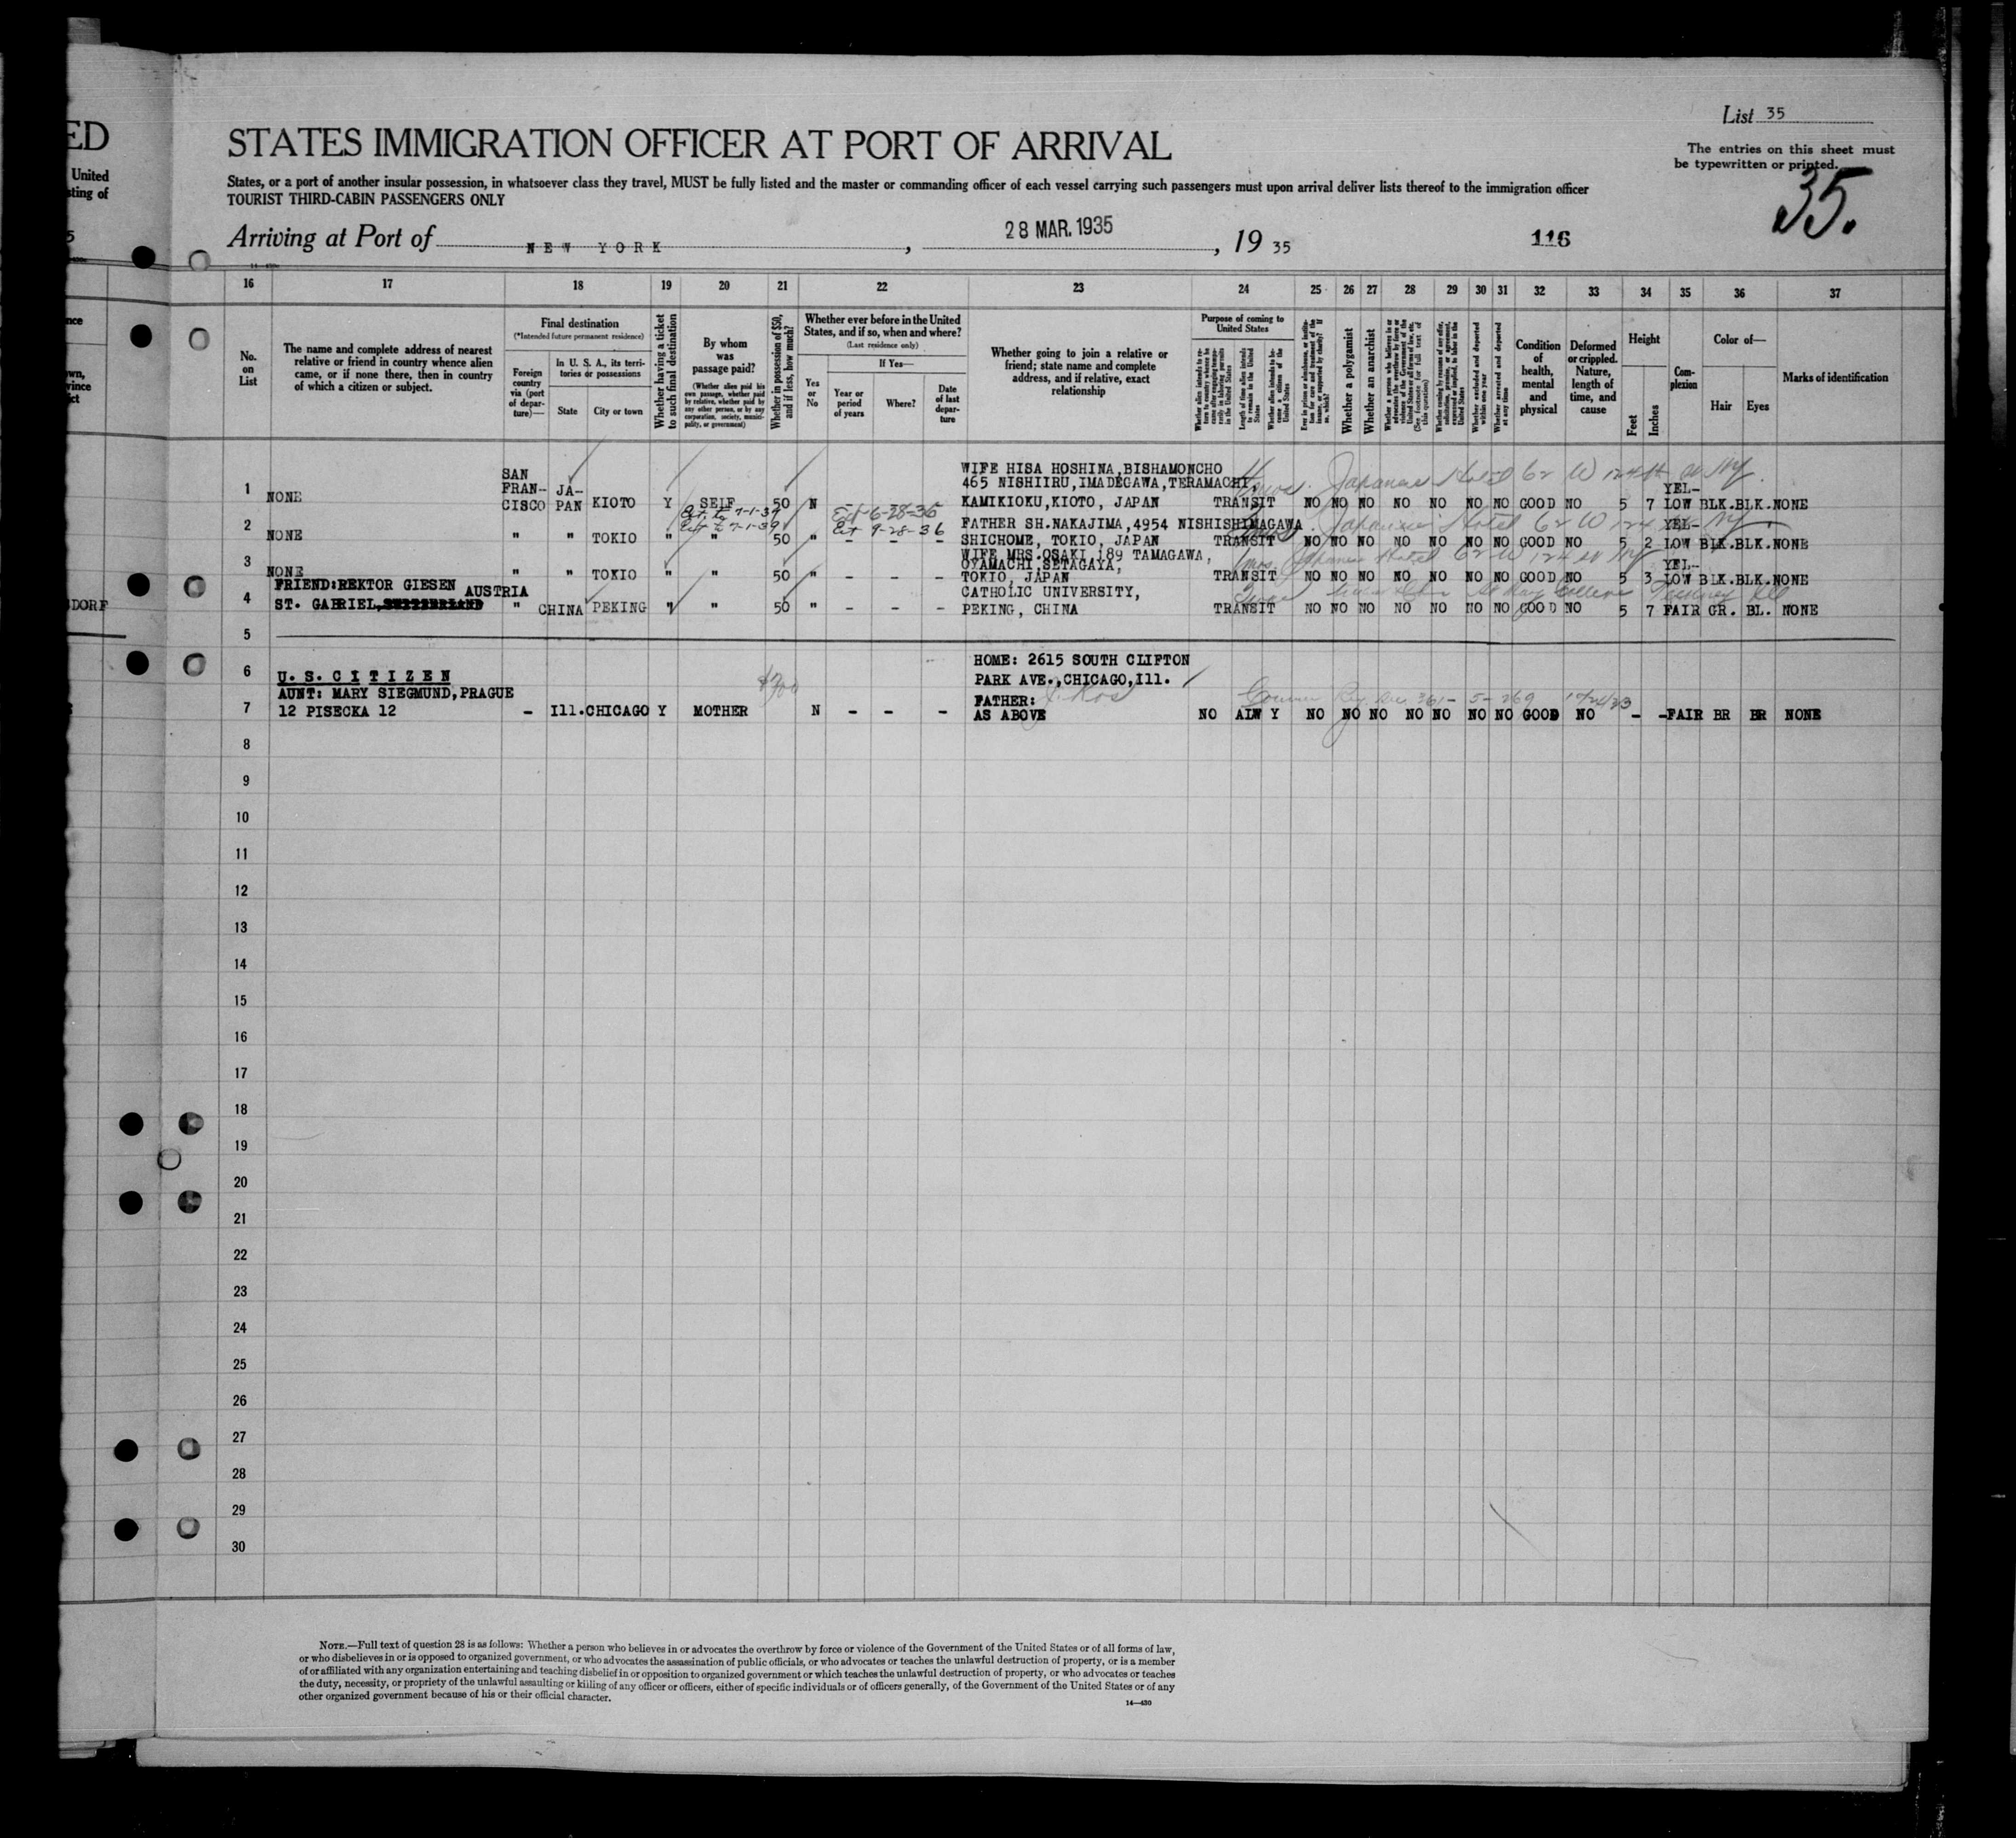 ED
United
sting of
List 35
STATES IMMIGRATION OFFICER AT PORT OF ARRIVAL
The entries on this sheet must
be typewritten or printed.
35.
States, or a port of another insular possession, in whatsoever class they travel, MUST be fully listed and the master or commanding officer of each vessel carrying such passengers must upon arrival deliver lists thereof to the immigration officer
TOURIST THIRD-CABIN PASSENGERS ONLY
Arriving at Port of NEW YORK, 28 MAR. 1935, 19 35
116
16 17 18 19 20 21 22 23 24 25 26 27 28 29 30 31 32 33 34 35 36 37
No. on List
The name and complete address of nearest relative or friend in country whence alien came, or if none there, then in country of which a citizen or subject.
Final destination
(*Intended future permanent residence)
Foreign country via (port of departure)—
In U. S. A., its territories or possessions
State
City or town
Whether having a ticket to such final destination
By whom was passage paid?
(Whether alien paid his own passage, whether paid by relative, whether paid by any other person, or by any corporation, society, municipality, or government)
Whether in possession of $50, and if less, how much?
Whether ever before in the United States, and if so, when and where?
(Last residence only)
Yes or No
If Yes—
Year or period of years
Where?
Date of last departure
Whether going to join a relative or friend; state name and complete address, and if relative, exact relationship
Purpose of coming to United States
Length of time alien intends to remain in the United States
Whether alien intends to become a citizen of the United States
Whether a polygamist
Whether an anarchist
Whether excluded and deported within one year
Whether arrested and deported at any time
Condition of health, mental and physical
Deformed or crippled. Nature, length of time, and cause
Height
Feet
Inches
Complexion
Color of—
Hair
Eyes
Marks of identification
1 NONE SAN FRAN- CISCO JA- PAN KIOTO Y SELF 50 N WIFE HISA HOSHINA,BISHAMONCHO
465 NISHIIRU,IMADEGAWA,TERAMACHI,
KAMIKIOKU,KIOTO, JAPAN TRANSIT NO NO NO NO NO NO NO GOOD NO 5 7 YEL- LOW BLK.BLK.NONE
Japanese Hotel 62 W 124th St NY
Ext to 7-1-39 Ext 6-28-36
Ext to 7-1-39 Ext 9-28-36
2 NONE " " TOKIO " " 50 " - - - FATHER SH.NAKAJIMA,4954 NISHISHINAGAWA
SHICHOME, TOKIO, JAPAN TRANSIT NO NO NO NO NO NO NO GOOD NO 5 2 YEL- LOW BLK.BLK.NONE
Japanese Hotel 62 W 124 St NY
3 NONE " " TOKIO " " 50 " - - - WIFE MRS.OSAKI,189 TAMAGAWA,
OYAMACHI,SETAGAYA,
TOKIO, JAPAN TRANSIT NO NO NO NO NO NO NO GOOD NO 5 3 YEL- LOW BLK.BLK.NONE
Japanese Hotel 62 W 124 St NY
4 FRIEND:REKTOR GIESEN AUSTRIA
ST. GABRIEL, " CHINA PEKING " " 50 " - - - CATHOLIC UNIVERSITY,
PEKING, CHINA TRANSIT NO NO NO NO NO NO NO GOOD NO 5 7 FAIR GR. BL. NONE
5
6 U.S.CITIZEN HOME: 2615 SOUTH CLIFTON
PARK AVE.,CHICAGO,Ill.
7 AUNT: MARY SIEGMUND,PRAGUE
12 PISECKA 12 - Ill.CHICAGO Y MOTHER N - - - FATHER: J. Kos
AS ABOVE NO ALW Y NO NO NO NO NO NO NO GOOD NO - - FAIR BR BR NONE
8
9
10
11
12
13
14
15
16
17
18
19
20
21
22
23
24
25
26
27
28
29
30
DORF
NOTE.—Full text of question 28 is as follows: Whether a person who believes in or advocates the overthrow by force or violence of the Government of the United States or of all forms of law,
or who disbelieves in or is opposed to organized government, or who advocates the assassination of public officials, or who advocates or teaches the unlawful destruction of property, or is a member
of or affiliated with any organization entertaining and teaching disbelief in or opposition to organized government or which teaches the unlawful destruction of property, or who advocates or teaches
the duty, necessity, or propriety of the unlawful assaulting or killing of any officer or officers, either of specific individuals or of officers generally, of the Government of the United States or of any
other organized government because of his or their official character.
14—430